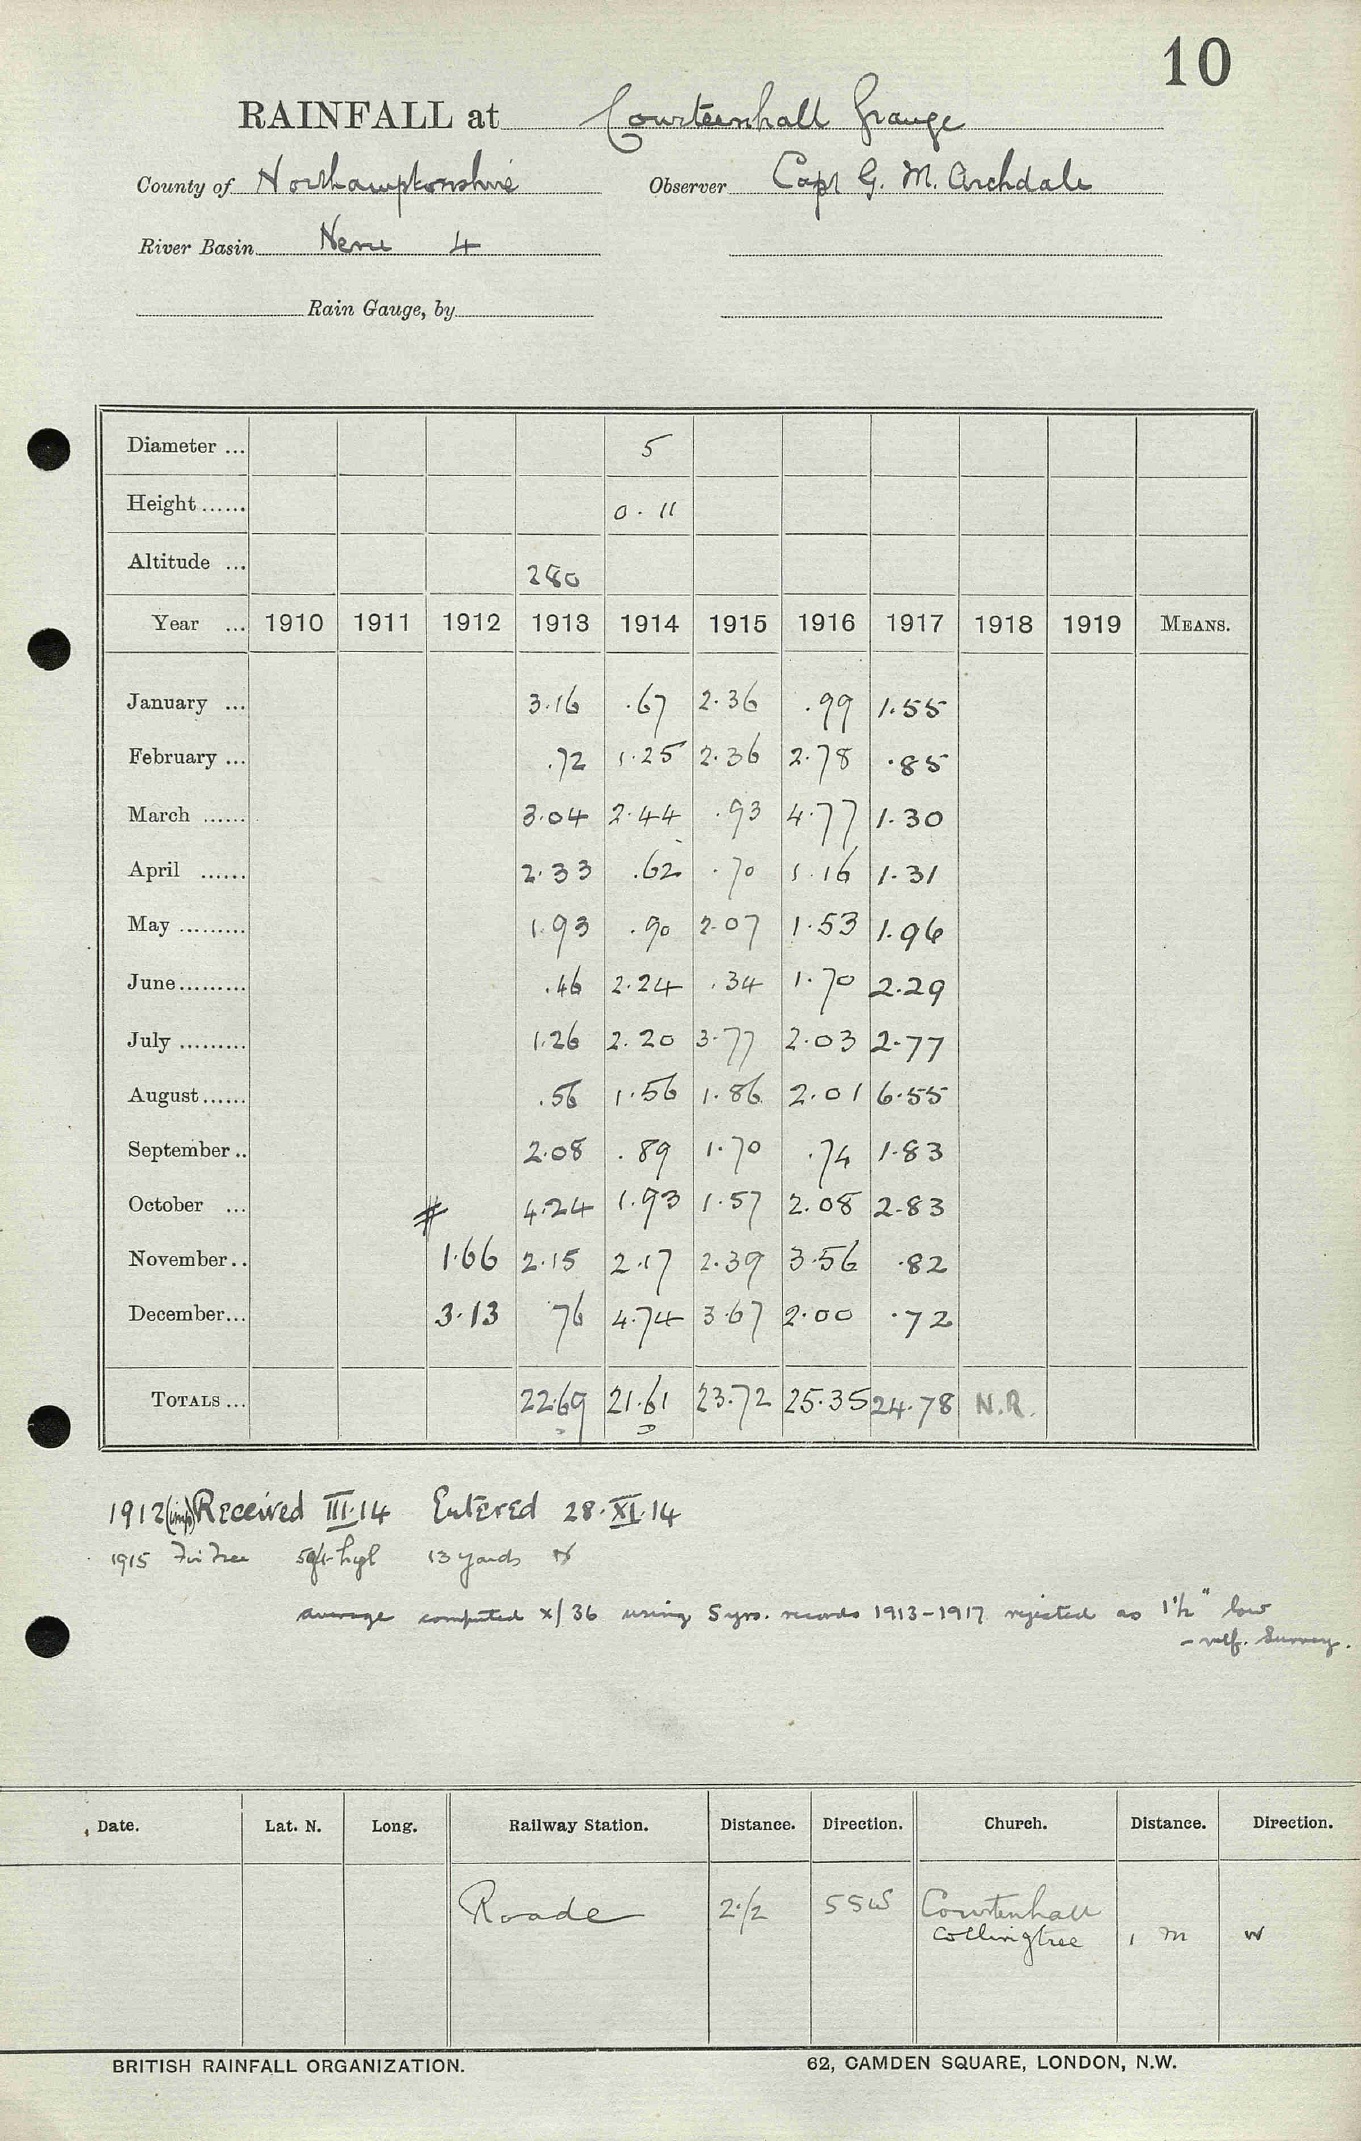 10
RAINFALL at Courteenhall Grange
County of Northamptonshire Observer Capt G. M. Archdale
River Basin Nene 4
Rain Gauge, by
Diameter ... 5
Height ...... 0.11
Altitude ... 280
Year ... 1910 1911 1912 1913 1914 1915 1916 1917 1918 1919 MEANS.
January ... 3.16 .67 2.36 .99 1.55
February ... .72 1.25 2.36 2.78 .85
March ...... 3.04 2.44 .93 4.77 1.30
April ...... 2.33 .62 .70 1.16 1.31
May ......... 1.93 .90 2.07 1.53 1.96
June ......... .46 2.24 .34 1.70 2.29
July ......... 1.26 2.20 3.77 2.03 2.77
August ...... .56 1.56 1.86 2.01 6.55
September .. 2.08 .89 1.70 .74 1.83
October ... # 4.24 1.93 1.57 2.08 2.83
November .. 1.66 2.15 2.17 2.39 3.56 .82
December ... 3.13 .76 4.74 3.67 2.00 .72
TOTALS ... 22.69 21.61 23.72 25.35 24.78 N.R.
1912 (imp) Received III.14 Entered 28.XI.14
1915 Fir Tree 59ft high 13 yards N
average computed x/36 using 5 yrs. records 1913-1917 rejected as 1½" low
Survey.
Date. Lat. N. Long. Railway Station. Distance. Direction. Church. Distance. Direction.
Roade 2½ SSW Courtenhall
Collingtree 1 m W
BRITISH RAINFALL ORGANIZATION. 62, CAMDEN SQUARE, LONDON, N.W.